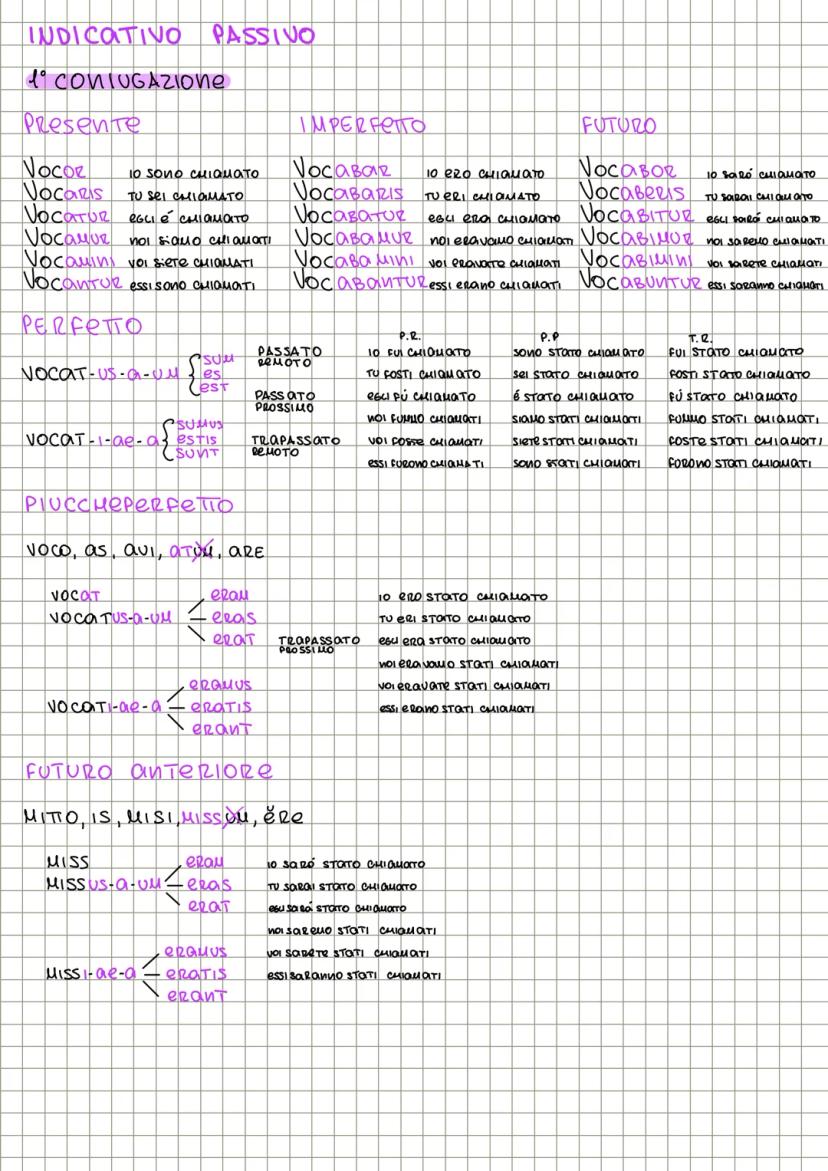 INDICATIVO PASSIVO
1° CONIUGAZIONE
PRESENTE IMPERFETTO FUTURO
VOCOR IO SONO CHIAMATO VOCABAR IO ERO CHIAMATO VOCABOR IO SARÓ CHIAMATO
VOCARIS TU SEI CHIAMATO VOCABARIS TU ERI CHIAMATO VOCABERIS TU SARAI CHIAMATO
VOCATUR EGLI É CHIAMATO VOCABATUR EGLI ERA CHIAMATO VOCABITUR EGLI SARÓ CHIAMATO
VOCAMUR NOI SIAMO CHIAMATI VOCABAMUR NOI ERAVAMO CHIAMATI VOCABIMUR NOI SAREMO CHIAMATI
VOCAMINI VOI SIETE CHIAMATI VOCABAMINI VOI ERAVATE CHIAMATI VOCABIMINI VOI SARETE CHIAMATI
VOCANTUR ESSI SONO CHIAMATI VOCABANTUR ESSI ERANO CHIAMATI VOCABUNTUR ESSI SARANNO CHIAMATI
PERFETTO
P.R. P.P T.R.
VOCAT-US-A-UM SUM PASSATO REMOTO IO FUI CHIAMATO SONO STATO CHIAMATO FUI STATO CHIAMATO
ES TU FOSTI CHIAMATO SEI STATO CHIAMATO FOSTI STATO CHIAMATO
EST PASSATO PROSSIMO EGLI FÚ CHIAMATO É STATO CHIAMATO FÚ STATO CHIAMATO
SUMUS NOI FUMMO CHIAMATI SIAMO STATI CHIAMATI FUMMO STATI CHIAMATI
VOCAT-I-AE-A ESTIS TRAPASSATO REMOTO VOI FOSTE CHIAMATI SIETE STATI CHIAMATI FOSTE STATI CHIAMATI
SUNT ESSI FURONO CHIAMATI SONO STATI CHIAMATI FURONO STATI CHIAMATI
PIUCCHEPERFETTO
VOCO, AS, AVI, ATUM, ARE
VOCAT ERAM IO ERO STATO CHIAMATO
VOCATUS-A-UM ERAS TU ERI STATO CHIAMATO
ERAT TRAPASSATO PROSSIMO EGLI ERA STATO CHIAMATO
NOI ERAVAMO STATI CHIAMATI
ERAMUS VOI ERAVATE STATI CHIAMATI
VOCATI-AE-A ERATIS ESSI ERANO STATI CHIAMATI
ERANT
FUTURO ANTERIORE
MITTO, IS, MISI, MISSUM, ĔRE
MISS ERAM IO SARÓ STATO CHIAMATO
MISSUS-A-UM ERAS TU SARAI STATO CHIAMATO
ERAT EGLI SARÁ STATO CHIAMATO
NOI SAREMO STATI CHIAMATI
ERAMUS VOI SARETE STATI CHIAMATI
MISSI-AE-A ERATIS ESSI SARANNO STATI CHIAMATI
ERANT